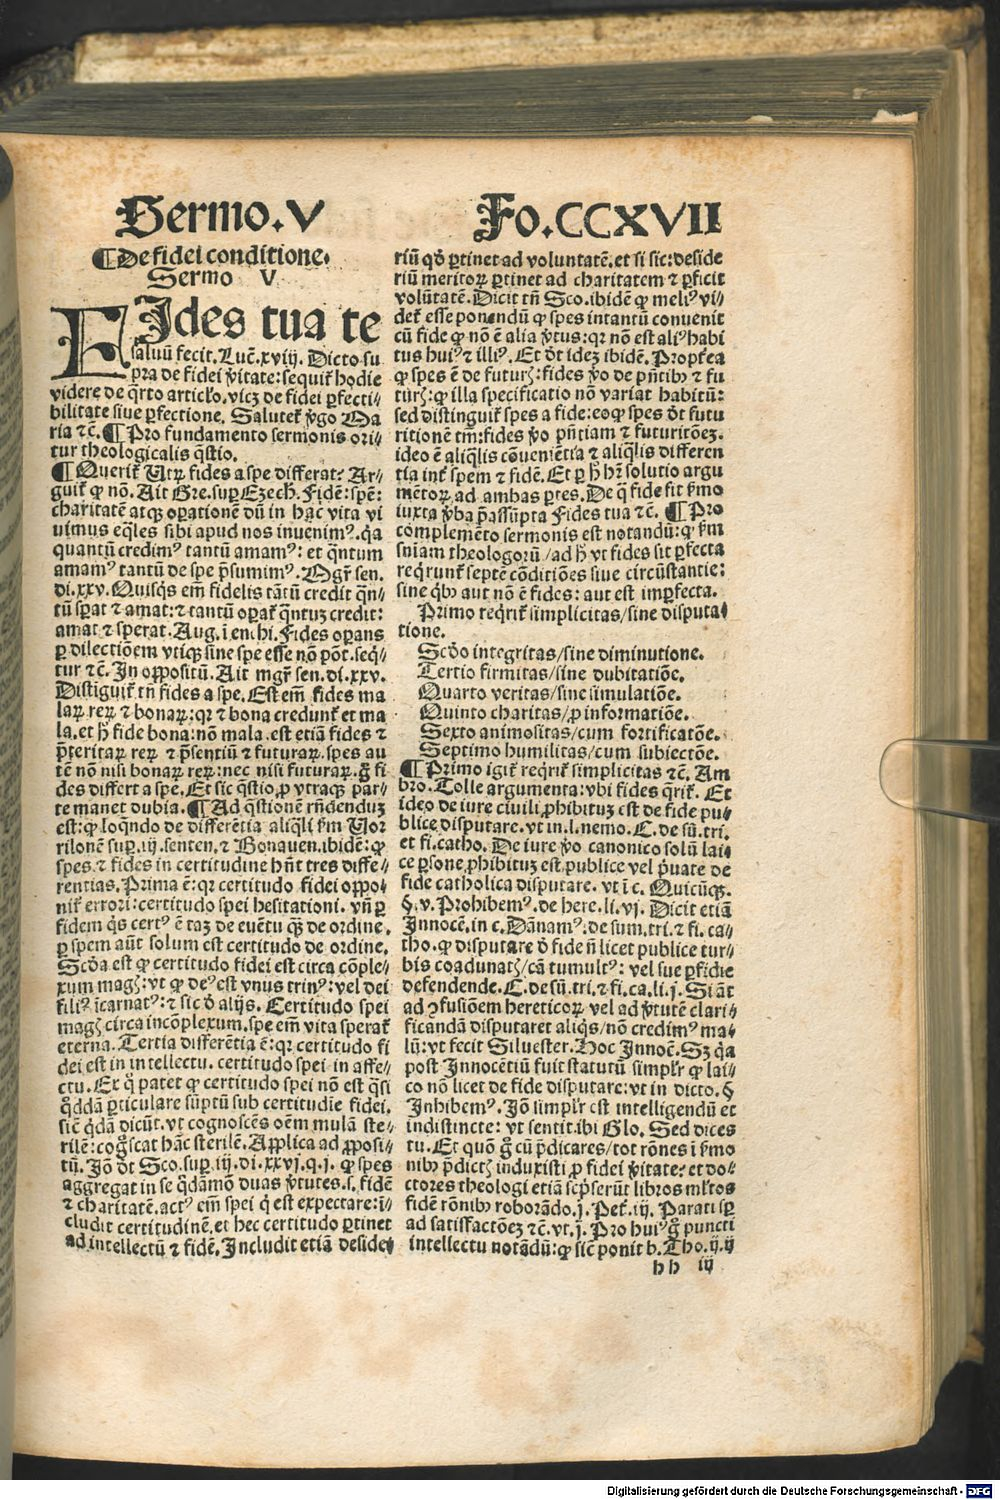 Sermo.V
Fo.CCXVII
¶De fidei conditione.
Sermo V
FIdes tua te
saluū fecit. Luē.xviij. Dicto su
pra de fidei ꝟitate: sequit᷑ hodie
videre de q̄rto articl̓o.vicꝫ de fidei ꝑfecti⸗
bilitate siue ꝑfectione. Salutet᷑ ꝟgo Ma
ria ⁊c̄. ¶Pro fundamento sermonis ori⸗
tur theologicalis q̄stio.
¶Querit᷑ Utꝝ fides a spe differat? Ar⸗
guit᷑ ꝙ nō. Ait Gre.suꝑ Ezech. Fidē: spē:
charitatē atqꝫ oꝑationē dū in hac vita vi
uimus eq̄les sibi apud nos inuenimꝰ. q̄a
quantū credimꝰ tantū amamꝰ: et q̄ntum
amamꝰ tantū de spe p̄sumimꝰ. Mgr̄ sen.
di.xxv. Quisqs em̄ fidelis tātū credit q̄n⸗
tū sꝑat ⁊ amat: ⁊ tantū oꝑat᷑ q̄ntuꝫ credit:
amat ⁊ sperat. Aug.ī enchi. Fides oꝑans
ꝑ dilectiōem vtiqꝫ sine spe esse nō pōt. seq̄⸗
tur ⁊c̄. In oppositū. Ait mgr̄ sen.di.xxv.
Distiguit᷑ tn̄ fides a spe. Est em̄ fides ma
laꝝ reꝝ ⁊ bonaꝝ: qꝛ ⁊ bona credunt᷑ et ma
la. et h̄ fide bona: nō mala. est etiā fides ⁊
p̄teritaꝝ reꝝ ⁊ p̄sentiū ⁊ futuraꝝ. spes au
tē nō nisi bonaꝝ reꝝ: nec nisi futuraꝝ. gͦ fi
des differt a spe. Et sic q̄stio ꝓ vtraqꝫ par⸗
te manet dubia. ¶Ad q̄stionē rn̄denduꝫ
est: ꝙ loq̄ndo de differētia aliq̄li s̄m Uor
rilonē suꝑ.iij.senten. ⁊ Bonauen.ibidē: ꝙ
spes ⁊ fides in certitudine hn̄t tres diffe⸗
rentias. Prima ē: qꝛ certitudo fidei oppo⸗
nit᷑ errori: certitudo spei hesitationi. vn̄ ꝑ
fidem q̇s certꝰ ē taꝫ de euētu qꝫ̄ de ordine.
ꝑ spem aūt solum est certitudo de ordine.
Scd̄a est ꝙ certitudo fidei est circa cōple⸗
xum magꝭ: vt ꝙ deꝰ est vnus trinꝰ: vel dei
filiꝰ īcarnatꝰ: ⁊ sic ď alijs. Certitudo spei
magꝭ circa incōplexum. spe em̄ vita sperat᷑
eterna. Tertia differētia ē: qꝛ certitudo fi
dei est in intellectu. certitudo spei in affe⸗
ctu. Ex qͦ patet ꝙ certitudo spei nō est q̄si
qͦddā ꝑticulare sūptū sub certitudīe fidei.
sic̄ q̄dā dicūt. vt cognoscēs oēm mulā ste⸗
rilē: cogͦscat hāc sterilē. Applica ad ꝓposi⸗
tū. Iō ďt Sco.suꝑ.iij.di.xxvj.q.j. ꝙ spes
aggregat in se q̄dāmō duas ꝟtutes.s.fidē
⁊ charitatē. actꝰ em̄ spei q̇ est expectare: ī⸗
cludit certitudinē. et hec certitudo ꝑtinet
ad intellectū ⁊ fidē. Includit etiā deside⸗
riū qd̄ ꝑtinet ad voluntatē. et si sic: deside
riū meritoꝝ ꝑtinet ad charitatem ⁊ ꝑficit
volūtatē. Dicit tn̄ Sco.ibidē ꝙ meliꝰ vi⸗
det᷑ esse ponendū ꝙ spes intantū conuenit
cū fide ꝙ nō ē alia ꝟtus: qꝛ nō est aliꝰ habi
tus huiꝰ ⁊ illiꝰ. Et ďt ideꝫ ibidē. Propt̄ea
ꝙ spes ē de futurꝭ: fides ꝟo de p̄ntibꝰ ⁊ fu
turꝭ: ꝙ illa specificatio nō variat habitū:
sed distinguit᷑ spes a fide: eo ꝙ spes ďt futu
ritionē tm̄: fides ꝟo p̄ntiam ⁊ futuritōeꝫ.
ideo ē aliq̄lis cōuenīētia ⁊ aliq̄lis differen
tia int̄ spem ⁊ fidē. Et ꝑ h̄ hr̄ solutio argu
mētoꝝ ad ambas ꝑtes. De q̄ fide fit s̄mo
iuxta ꝟba p̄assūpta Fides tua ⁊c̄. ¶Pro
complemēto sermonis est notandū: ꝙ s̄m
sn̄iam theologorū/ad h̄ vt fides sit ꝑfecta
reqͥrunt᷑ septē cōditiōes siue circūstantie:
sine q̇bꝰ aut nō ē fides: aut est imꝑfecta.
Primo reqͥrit᷑ simplicitas/sine disputa⸗
tione.
Scd̄o integritas/sine diminutione.
Tertio firmitas/sine dubitatiōe.
Quarto veritas/sine simulatiōe.
Quinto charitas/ꝓ informatiōe.
Sexto animositas/cum fortificatōe.
Septimo humilitas/cum subiectōe.
¶Primo igit᷑ reqͥrit᷑ simplicitas ⁊c̄. Am
bro. Tolle argumenta: vbi fides q̄rit᷑. Et
ideo de iure ciuili ꝓhibituꝫ est de fide pu⸗
blice disputare. vt in.l.nemo. C. de sū.tri.
et fi.catho. De iure ꝟo canonico solū lai⸗
ce ꝑsone ꝓhibituꝫ est publice vel ṗuate de
fide catholica disputare. vt ī c. Quicūqꝫ.
§.v. Prohibemꝰ. de here.li.vj. Dicit etiā
Innocē.in c. Dānamꝰ. de sum.tri. ⁊ fi.ca⸗
tho. ꝙ disputare ď fide n̄ licet publice tur⸗
bis coadunatꝭ/cā tumultꝰ: vel sue ꝑfidie
defendende. C. de sū.tri. ⁊ fi.ca.li.j. Si āt
ad ꝯfusiōem hereticoꝝ vel ad ꝟtutē clari⸗
ficandā disputaret aliqͥs/nō credimꝰ ma⸗
lū: vt fecit Siluester. Hoc Innoē. Sꝫ q̄a
post Innocētiū fuit statutū simpl̓r ꝙ lai⸗
co nō licet de fide disputare: vt in dicto.§
Inhibemꝰ. Iō simpl̓r est intelligendū et
indistincte: vt sentit.ibi Glo. Sed dices
tu. Et quō gͦ cū p̄dicares/tot rōnes ī s̄mo
nibꝰ p̄dictꝭ induxisti ꝓ fidei ꝟitate? et do⸗
ctores theologi etiā scp̄serūt libros ml̓tos
fidē rōnibꝰ roborādo.j.Pet̄.iij. Parati sꝑ
ad satisfactōeꝫ ⁊c̄. vt.j. Pro huiꝰ gͦ puncti
intellectu notādū: ꝙ sic̄ ponit b.Tho.ij.ij
hh iij
Digitalisierung gefördert durch die Deutsche Forschungsgemeinschaft - DFG